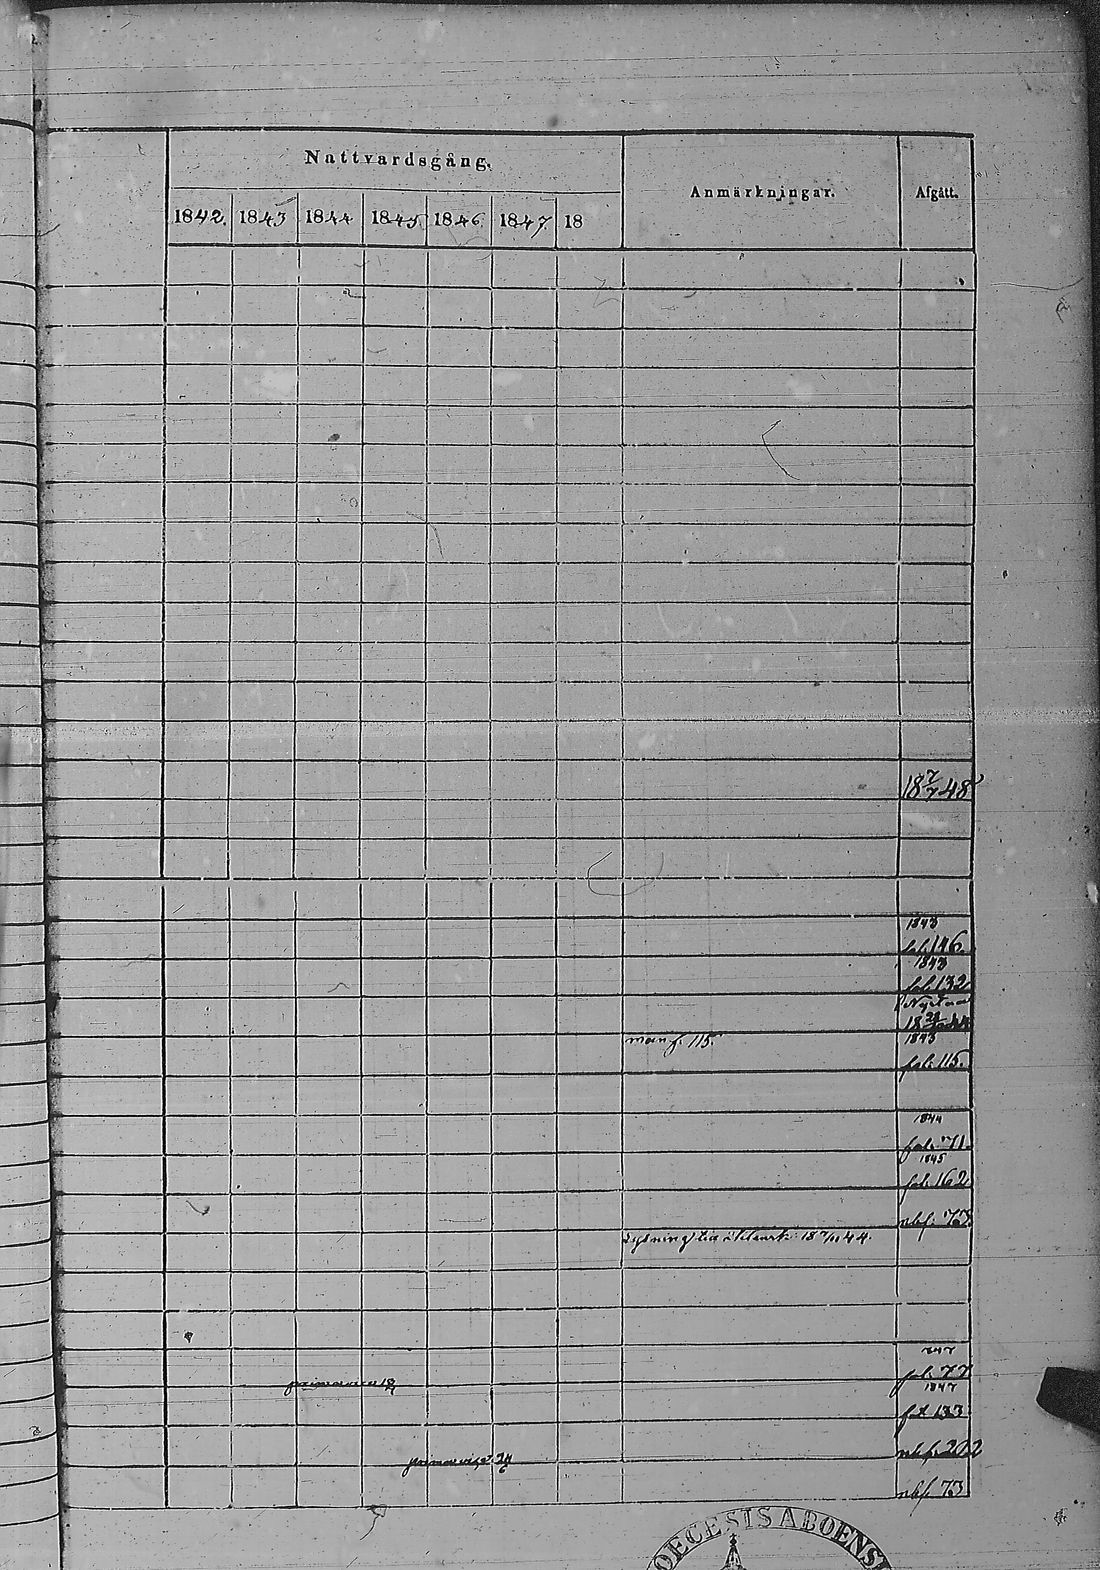 Nattvardsgång.
Anmärkningar.
Afgått.
1842. 1843 1844 1845 1846. 1847. 18
18 7/7 48
1843
fol. 146.
1843
fol. 132
18
man f. 115.
1843
fol. 115.
1844
fol. 71.
1845
fol. 162
nbf. 73.
Lysning 18 44.
847
fol. 77
1847
fol 133
nbf. 202
nbf. 73
OECESIS ABOENSI